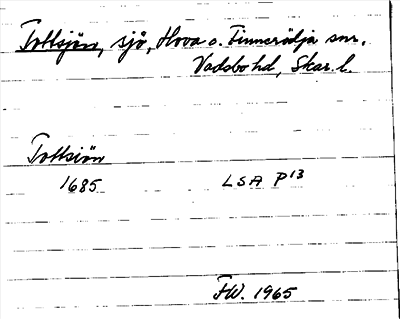 Toltsjön, sjö, Hova o. Tiveds snr.
Vadsbo hd, Skar. l.
Toltsiön
1685 LSA P13
FW. 1965